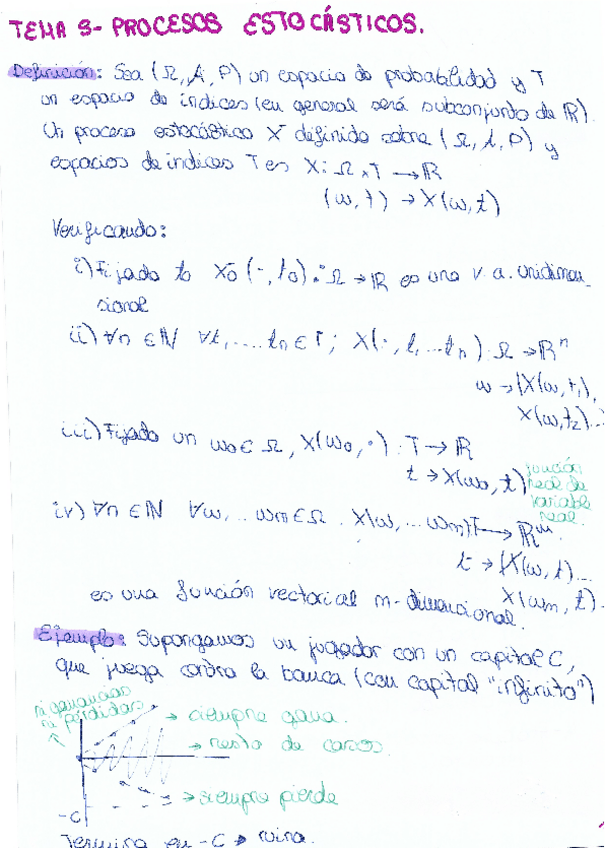 TEMA 3- PROCESOS ESTOCÁSTICOS.
Definición: Sea (Ω, A, P) un espacio de probabilidad y T
un espacio de índices (en general será subconjunto de ℝ).
Un proceso estocástico X definido sobre (Ω, A, P) y
espacios de índices T es X: Ω × T → ℝ
(ω, t) → X(ω, t)
Verificando:
i) Fijado t₀ X₀(·, t₀): Ω → ℝ es una v.a. unidimen-
sional
ii) ∀n ∈ ℕ ∀t₁ .... tₙ ∈ T; X(·, t₁ ... tₙ): Ω → ℝⁿ
ω → (X(ω, t₁),
X(ω, t₂)...
iii) Fijado un ω₀ ∈ Ω, X(ω₀, ·): T → ℝ
t → X(ω₀, t)
función
real de
variable
real.
iv) ∀n ∈ ℕ ∀ω, ... ωm ∈ Ω. X(ω, ... ωm) T → ℝᵐ.
t → (X(ω, t)...
X(ωm, t).
es una función vectorial m-dimensional.
Ejemplo: Supongamos un jugador con un capital C,
que juega contra la banca (con capital "infinito")
ni ganancias
ni pérdidas
→ siempre gana.
→ resto de casos.
→ siempre pierde
-C
Termina en -C → ruina.